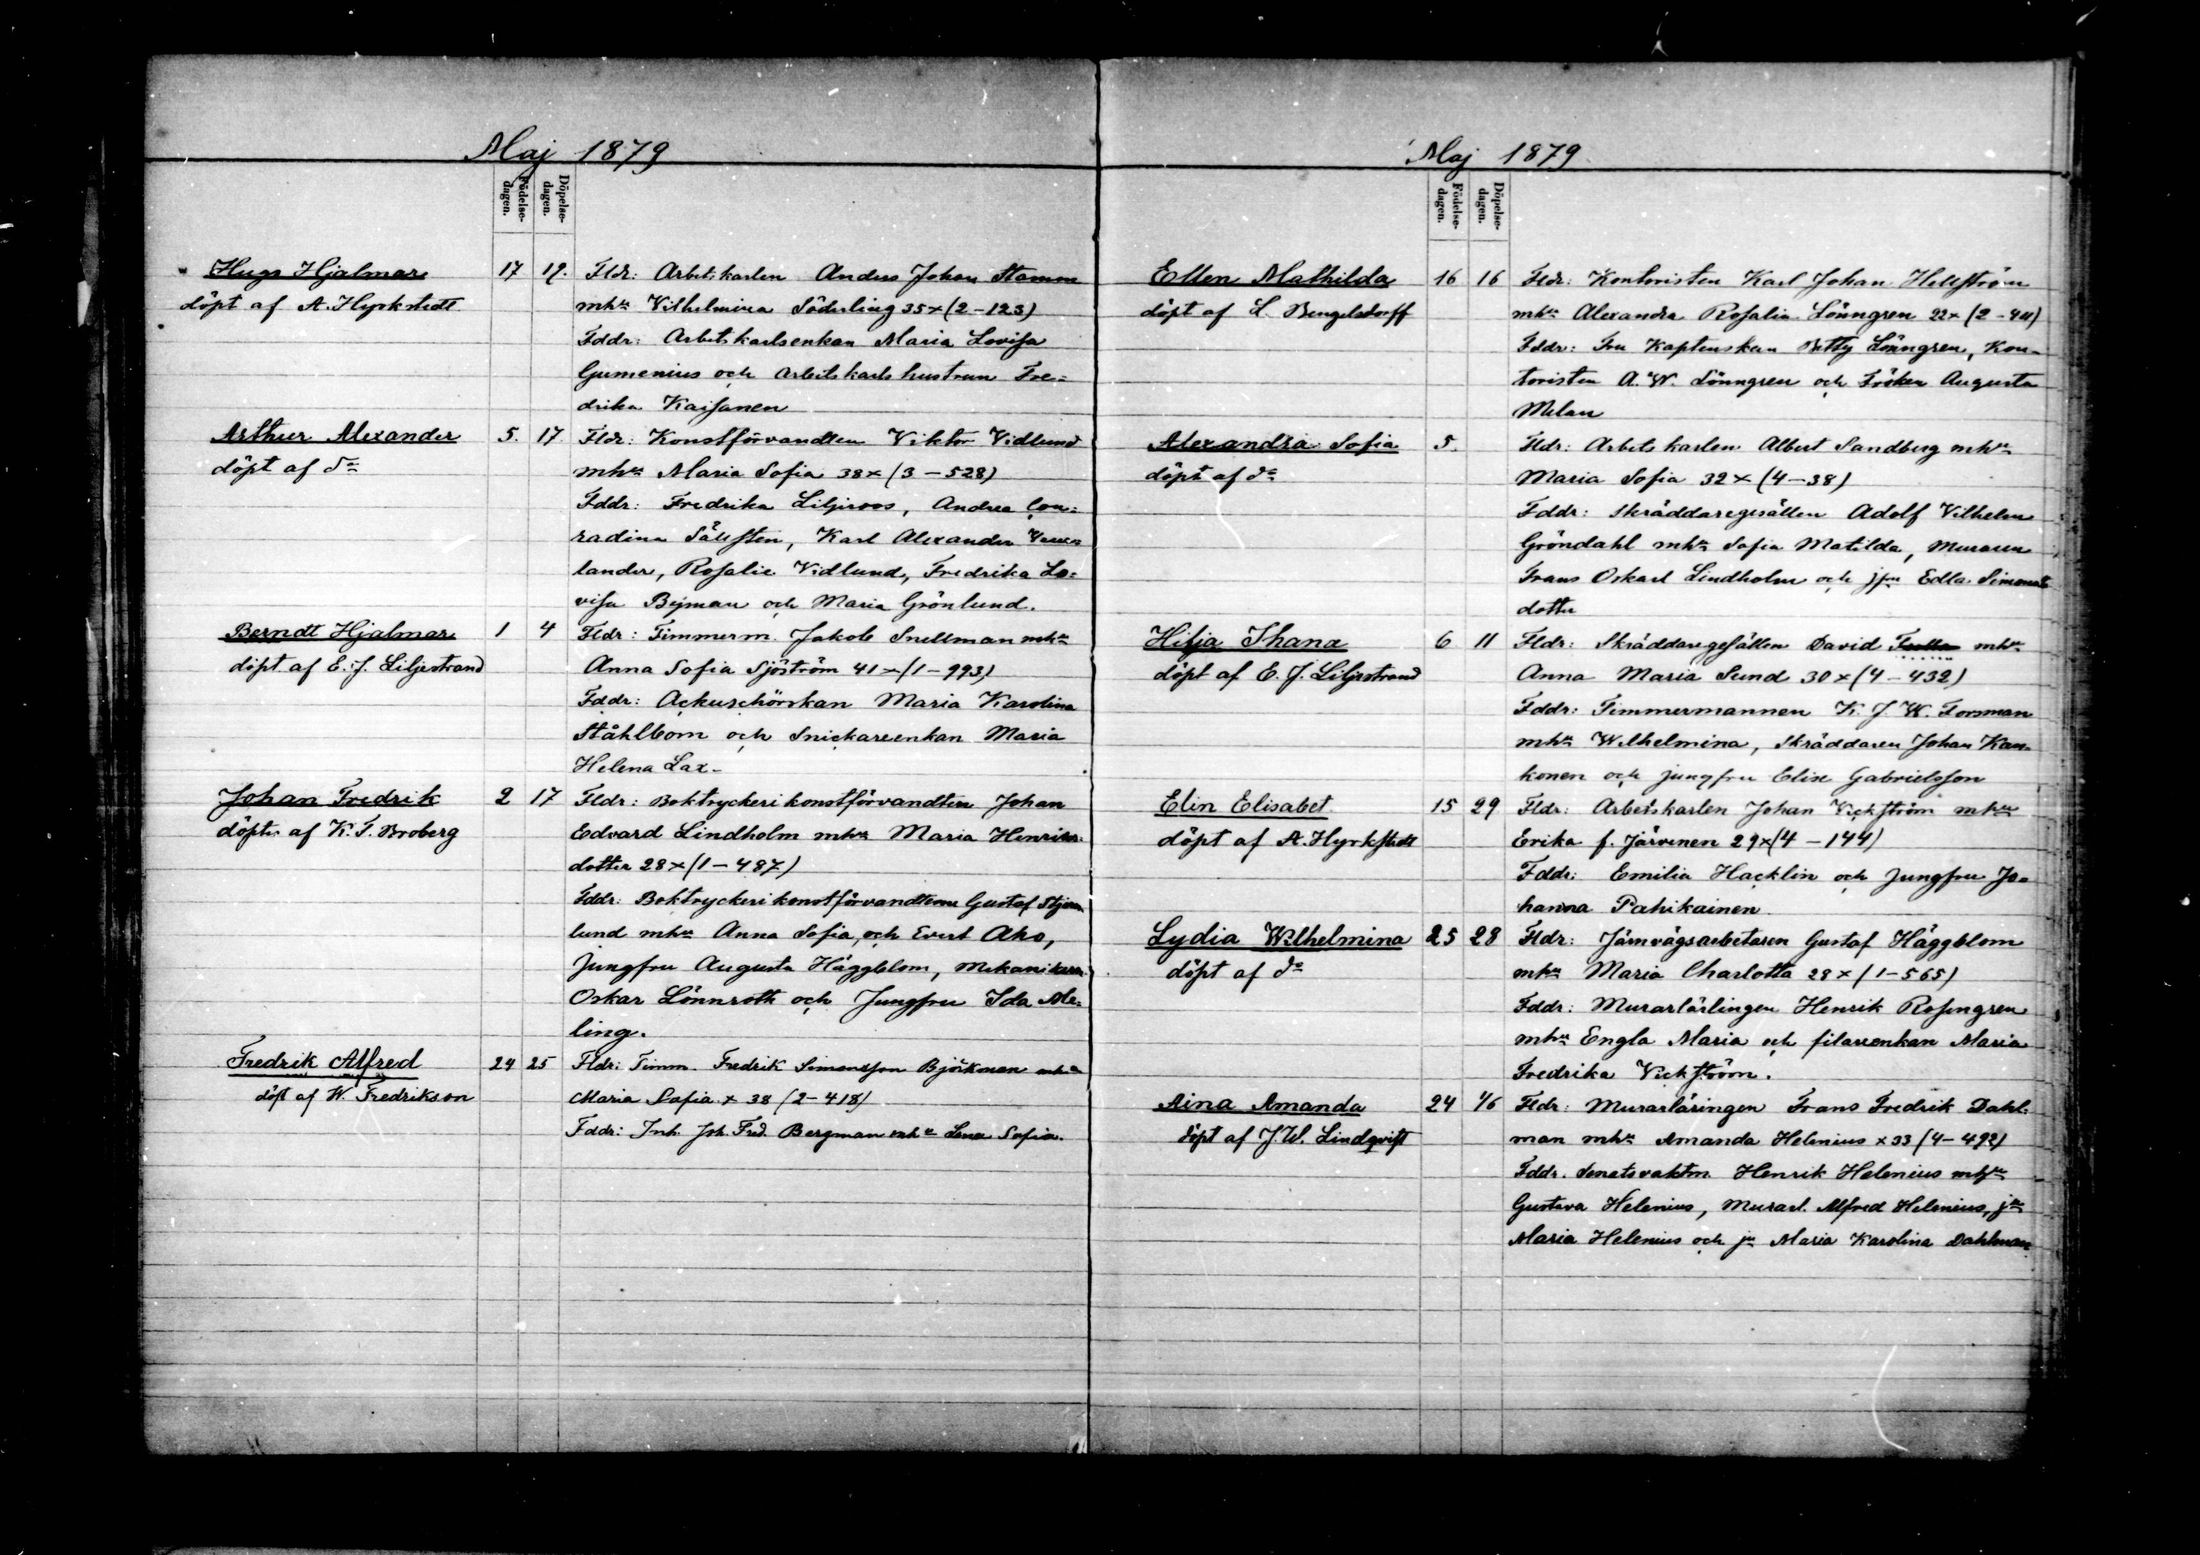 Maj 1879
Födelse-dagen.
Döpelse-dagen.
Hugo Hjalmar 17 19. Fldr: Arbetskarlen Anders Johan Stamm
döpt af A. Hyrkstedt mhu Vilhelmina Söderling 35 x (2-123)
Fddr: Arbetskarlsenkan Maria Lovisa
Gumenius och arbetskarls hustrun Fre-
drika Kaisanen
Arthur Alexander 5. 17. Fldr: Konstförvandten Viktor Vidlund
döpt af do mhu Maria Sofia 38 x (3-528)
Fddr: Fredrika Liljeroos, Andrea Con-
radina Sällsten, Karl Alexander
lander, Rosalie Vidlund, Fredrika Lo-
visa Bejman och Maria Grönlund.
Berndt Hjalmar 1 4 Fldr: Timmerm. Jakob Snellman mhu
döpt af E. J. Liljestrand Anna Sofia Sjöström 41 x (1-993)
Fddr: Ackuschörskan Maria Karolina
Ståhlbom och Snickareenkan Maria
Helena Lax-
Johan Fredrik 2 17 Fldr: Boktryckerikonstförvandten Johan
döpts af K. T. Broberg Edvard Lindholm mhu Maria Henriks-
dotter 28 x (1-487)
Fddr: Boktryckerikonstförvandterne Gustaf
lund mhu Anna Sofia, och Evert Aho,
Jungfru Augusta Häggblom, Mekanikern
Oskar Lönnroth och Jungfru Ida Me-
ling.
Fredrik Alfred 24 25 Fldr: Timm. Fredrik Simonsson Björkman mhu
döpt af W. Fredrikson Maria Sofia x 38 (2-418)
Fddr: Inh. Joh. Fred. Bergman mhu Lena Sofia.
Maj 1879.
Födelse-dagen.
Döpelse-dagen.
Ellen Mathilda 16 16 Fldr: Kontoristen Karl Johan Hellström
döpt af L. Bengelsdorff mhu Alexandra Rosalia Lönngren 22 x (2-44)
Fddr: Fru Kaptenskan Betty Lönngren, Kon-
toristen A. W. Lönngren och Fröken Augusta
Melan
Alexandra Sofia 5. Fldr: Arbetskarlen Albert Sandberg mhu
döpt af do Maria Sofia 32 x (4-38)
Fddr: Skräddaregesällen Adolf Vilhelm
Gröndahl mhu Sofia Matilda, Muraren
Frans Oskar Lindholm och jfru Edla Simons
dotter
Hilja Ihana 6 11 Fldr: Skräddaregesällen David mhu
döpt af E. J. Liljestrand Anna Maria Sund 30 x (4-432)
Fddr: Timmermannen K. J. W. Forsman
mhu Wilhelmina, Skräddaren Johan Kan-
konen och jungfru Elise Gabrielsson
Elin Elisabet 15 29 Fldr: Arbetskarlen Johan Vickström mhu
döpt af A. Hyrkstedt Erika f. Järvinen 29 x (4-144)
Fddr: Emilia Hacklin och Jungfru Jo-
hanna Pahikainen
Lydia Wilhelmina 25 28 Fldr: Järnvägsarbetaren Gustaf Häggblom
döpt af do mhu Maria Charlotta 28 x (1-565)
Fddr: Murarlärlingen Henrik Rosengren
mhu Engla Maria och filarenkan Maria
Fredrika Vickström.
Aina Amanda 24 1/6 Fldr: Murarläringen Frans Fredrik Dahl-
döpt af J. W. Lindqvist man mhu Amanda Helenius x 33 (4-492)
Fddr. Senatsvaktm. Henrik Helenius mhu
Gustava Helenius, Murarl. Alfred Helenius, jfru
Maria Helenius och jfru Maria Karolina Dahlman